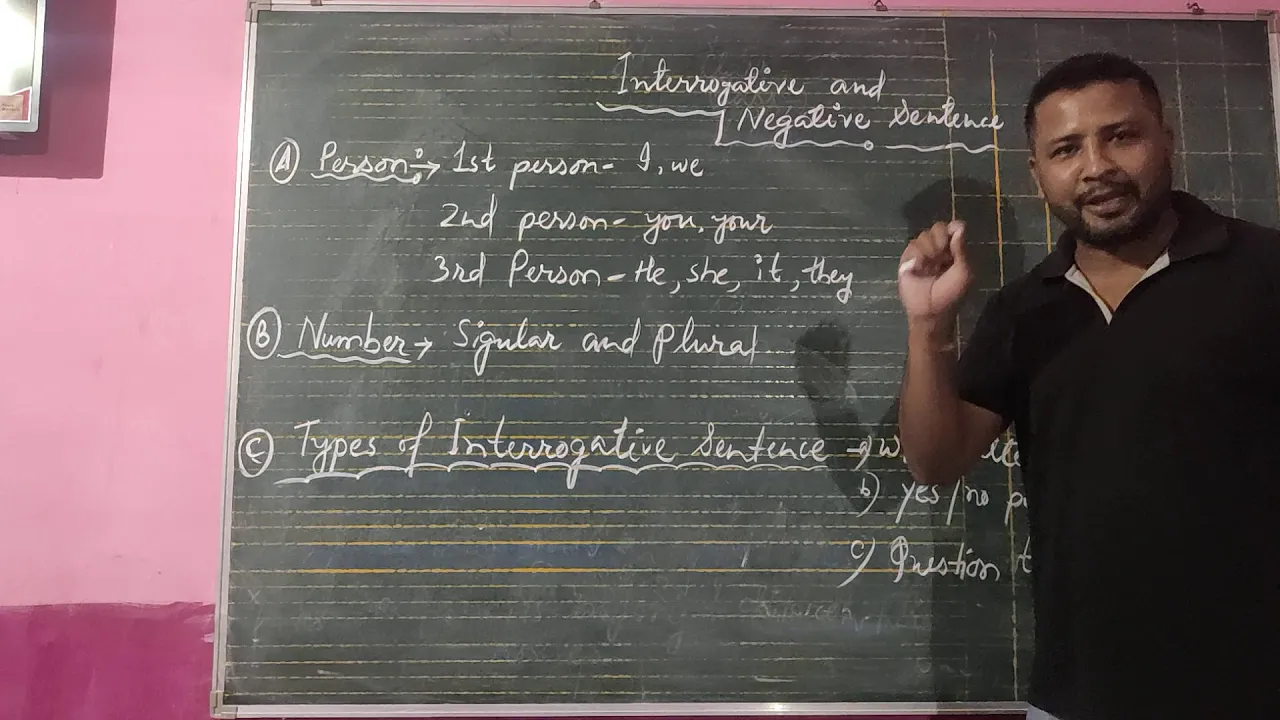 Interrogative and
Negative Sentence
A Person :→ 1st person - I, we
2nd person - you, your
3rd Person - He, she, it, they
B Number → Sigular and Plural
C Types of Interrogative Sentence → a)
b) yes/no
c) Question